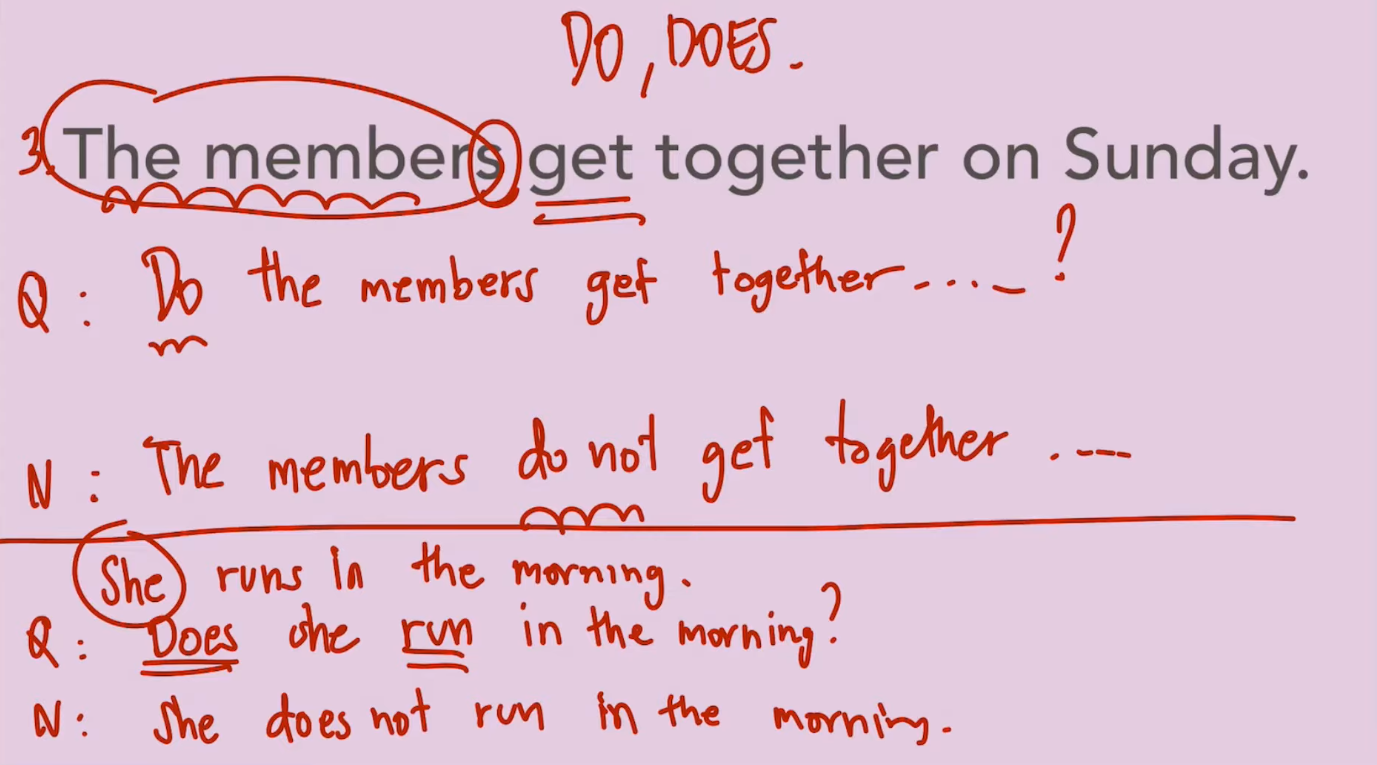 DO, DOES.
3. The members get together on Sunday.
Q: Do the members get together.....?
N: The members do not get together ....
She runs in the morning.
Q: Does she run in the morning?
N: She does not run in the morning.